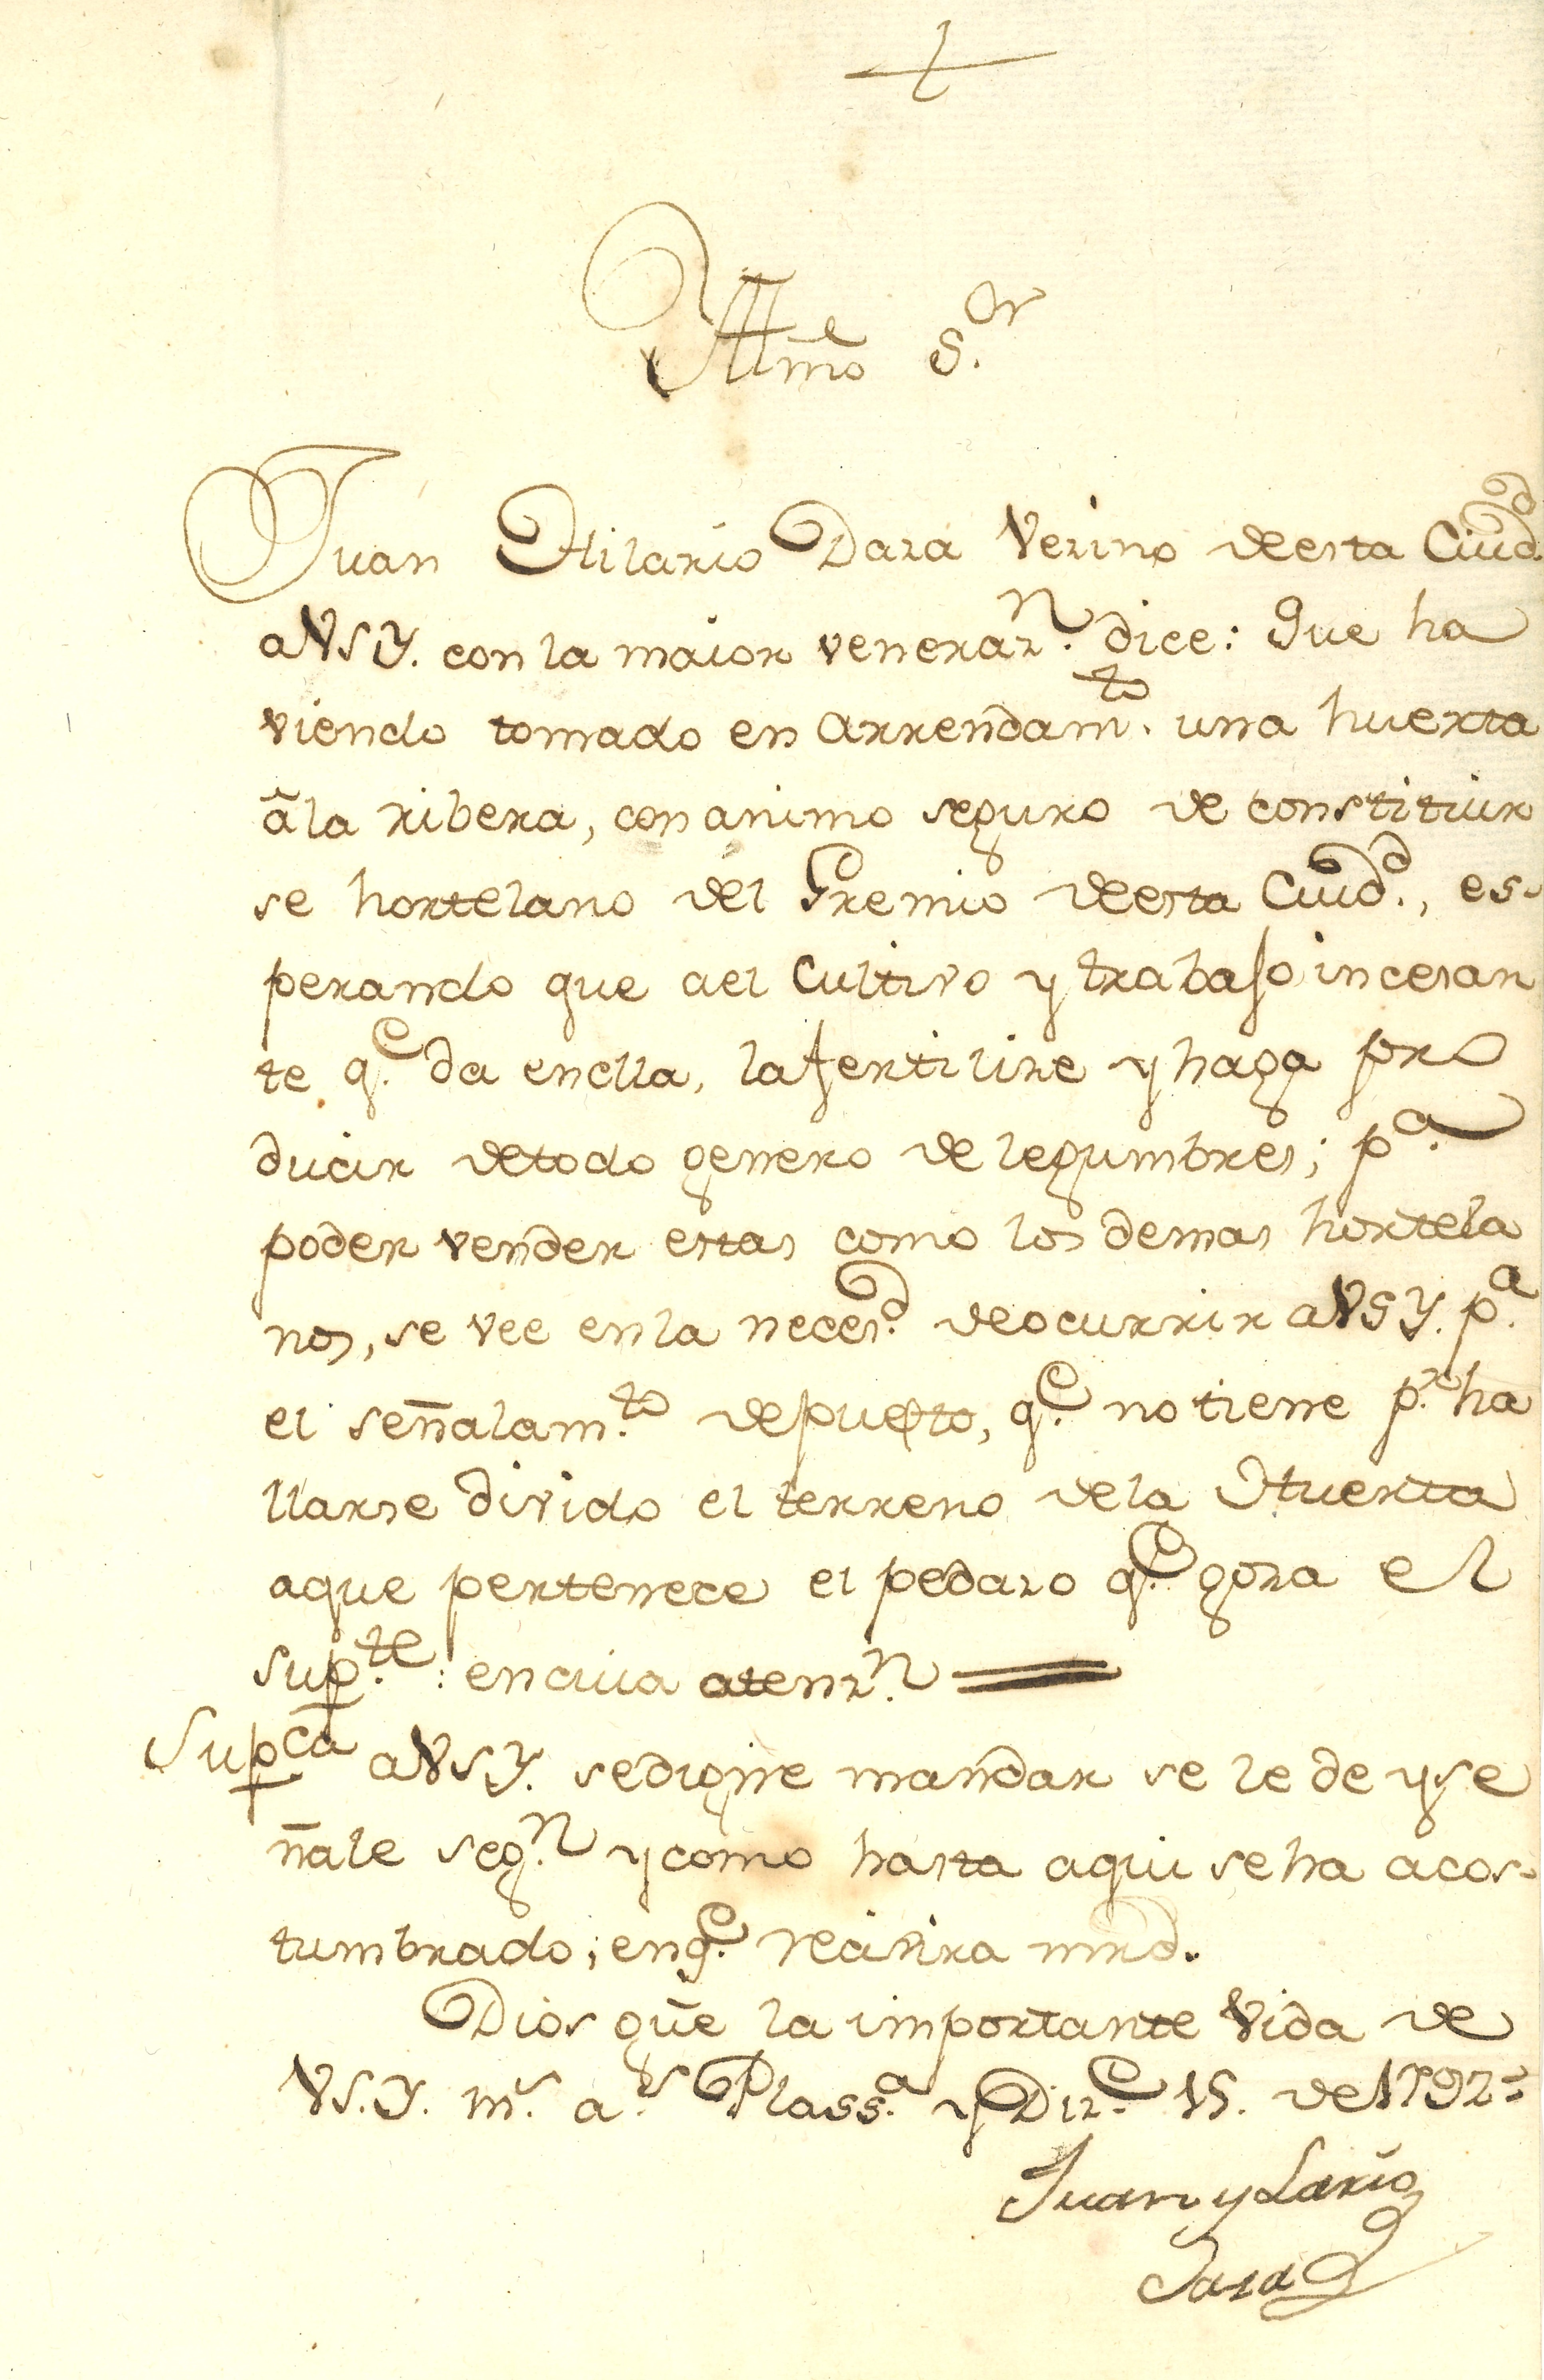 Yllmo S.or
Juan Hilario Daza Vezino de esta Ciud.d
a VSY. con la maior veneraz.n dice: Que ha
viendo tomado en arrendam.to una huerta
â la ribera, con animo seguro de constituir
se hortelano del Gremio de esta Ciud.d, es-
perando que a el cultivo y trabajo incesan
te q.e da en ella, la fertilize y haga pro
ducir de todo genero de legumbres; p.a
poder vender estas como los demas hortela
nos, se vee en la neces.d de ocurrir a VSY. p.a
el señalam.to de puesto, q.e no tiene p.r ha
llarse divido el terreno de la Huerta
a que pertenece el pedazo q.e goza el
sup.te: en cuia atenz.n
Sup.ca a VSY. se digne mandar se le de y se
ñale seg.n y como hasta aqui se ha acos-
tumbrado; en q.e recivira mrd.
Dios gũe la importante Vida de
VS.Y. m.s a.s Plass.a y Diz.e 15. de 1792=
Juan y Lario
Daza